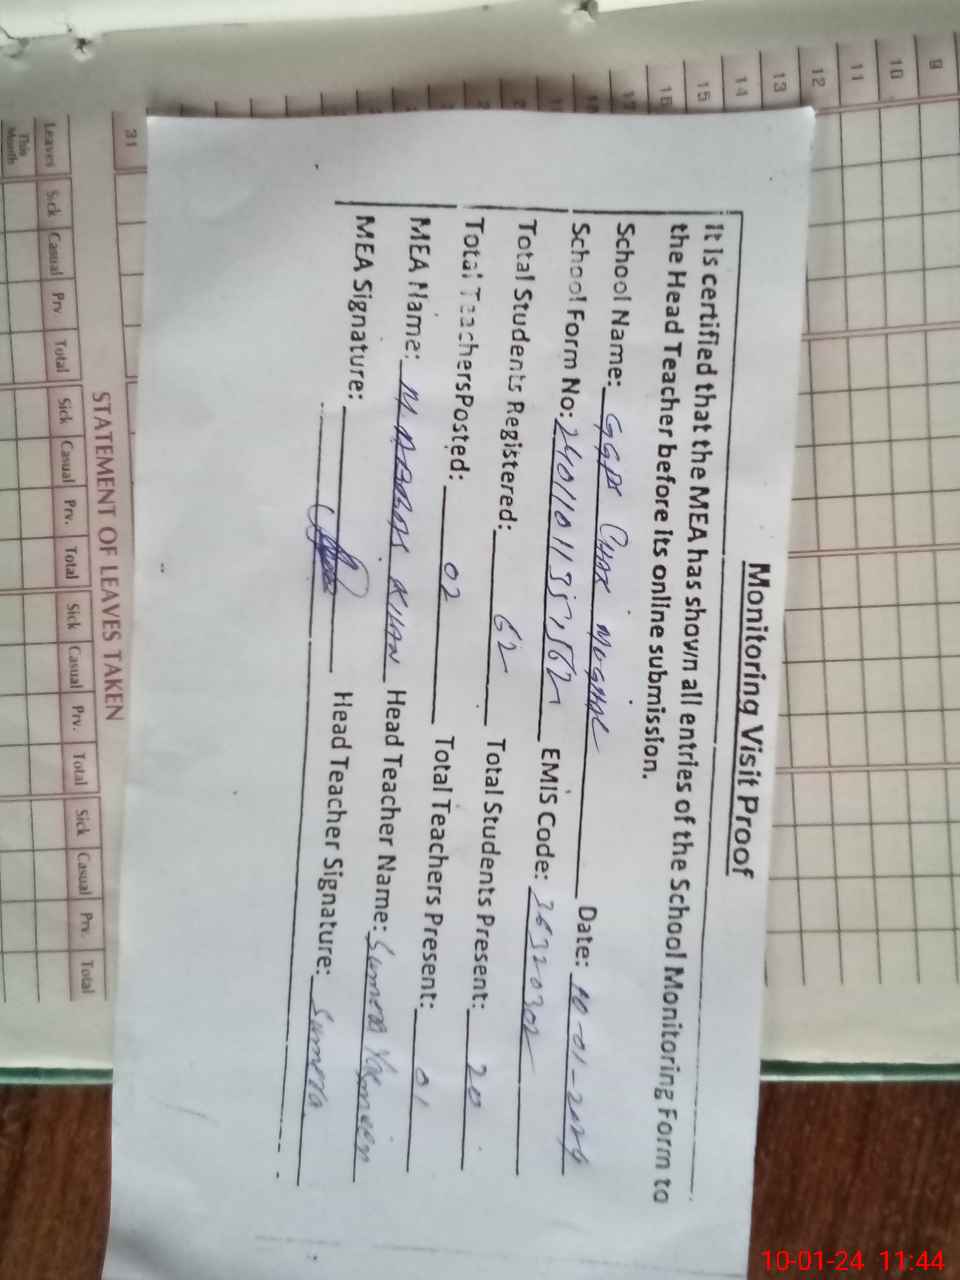 Monitoring Visit Proof
It is certified that the MEA has shown all entries of the School Monitoring Form to
the Head Teacher before its online submission.
School Name: GGPS CHAK MUGHAL Date: 10-01-2024
School Form No: EMIS Code:
Total Students Registered: 62 Total Students Present: 20
Total TeachersPosted: 02 Total Teachers Present: 01
MEA Name: M ABBAS KHAN Head Teacher Name: Sumera Yasmeen
MEA Signature: Head Teacher Signature: Sumera
STATEMENT OF LEAVES TAKEN
Leaves Sick Casual Prv Total Sick Casual Prv. Total Sick Casual Prv. Total Sick Casual Prv. Total
This Month
9
10
11
12
13
14
15
16
31
10-01-24 11:44